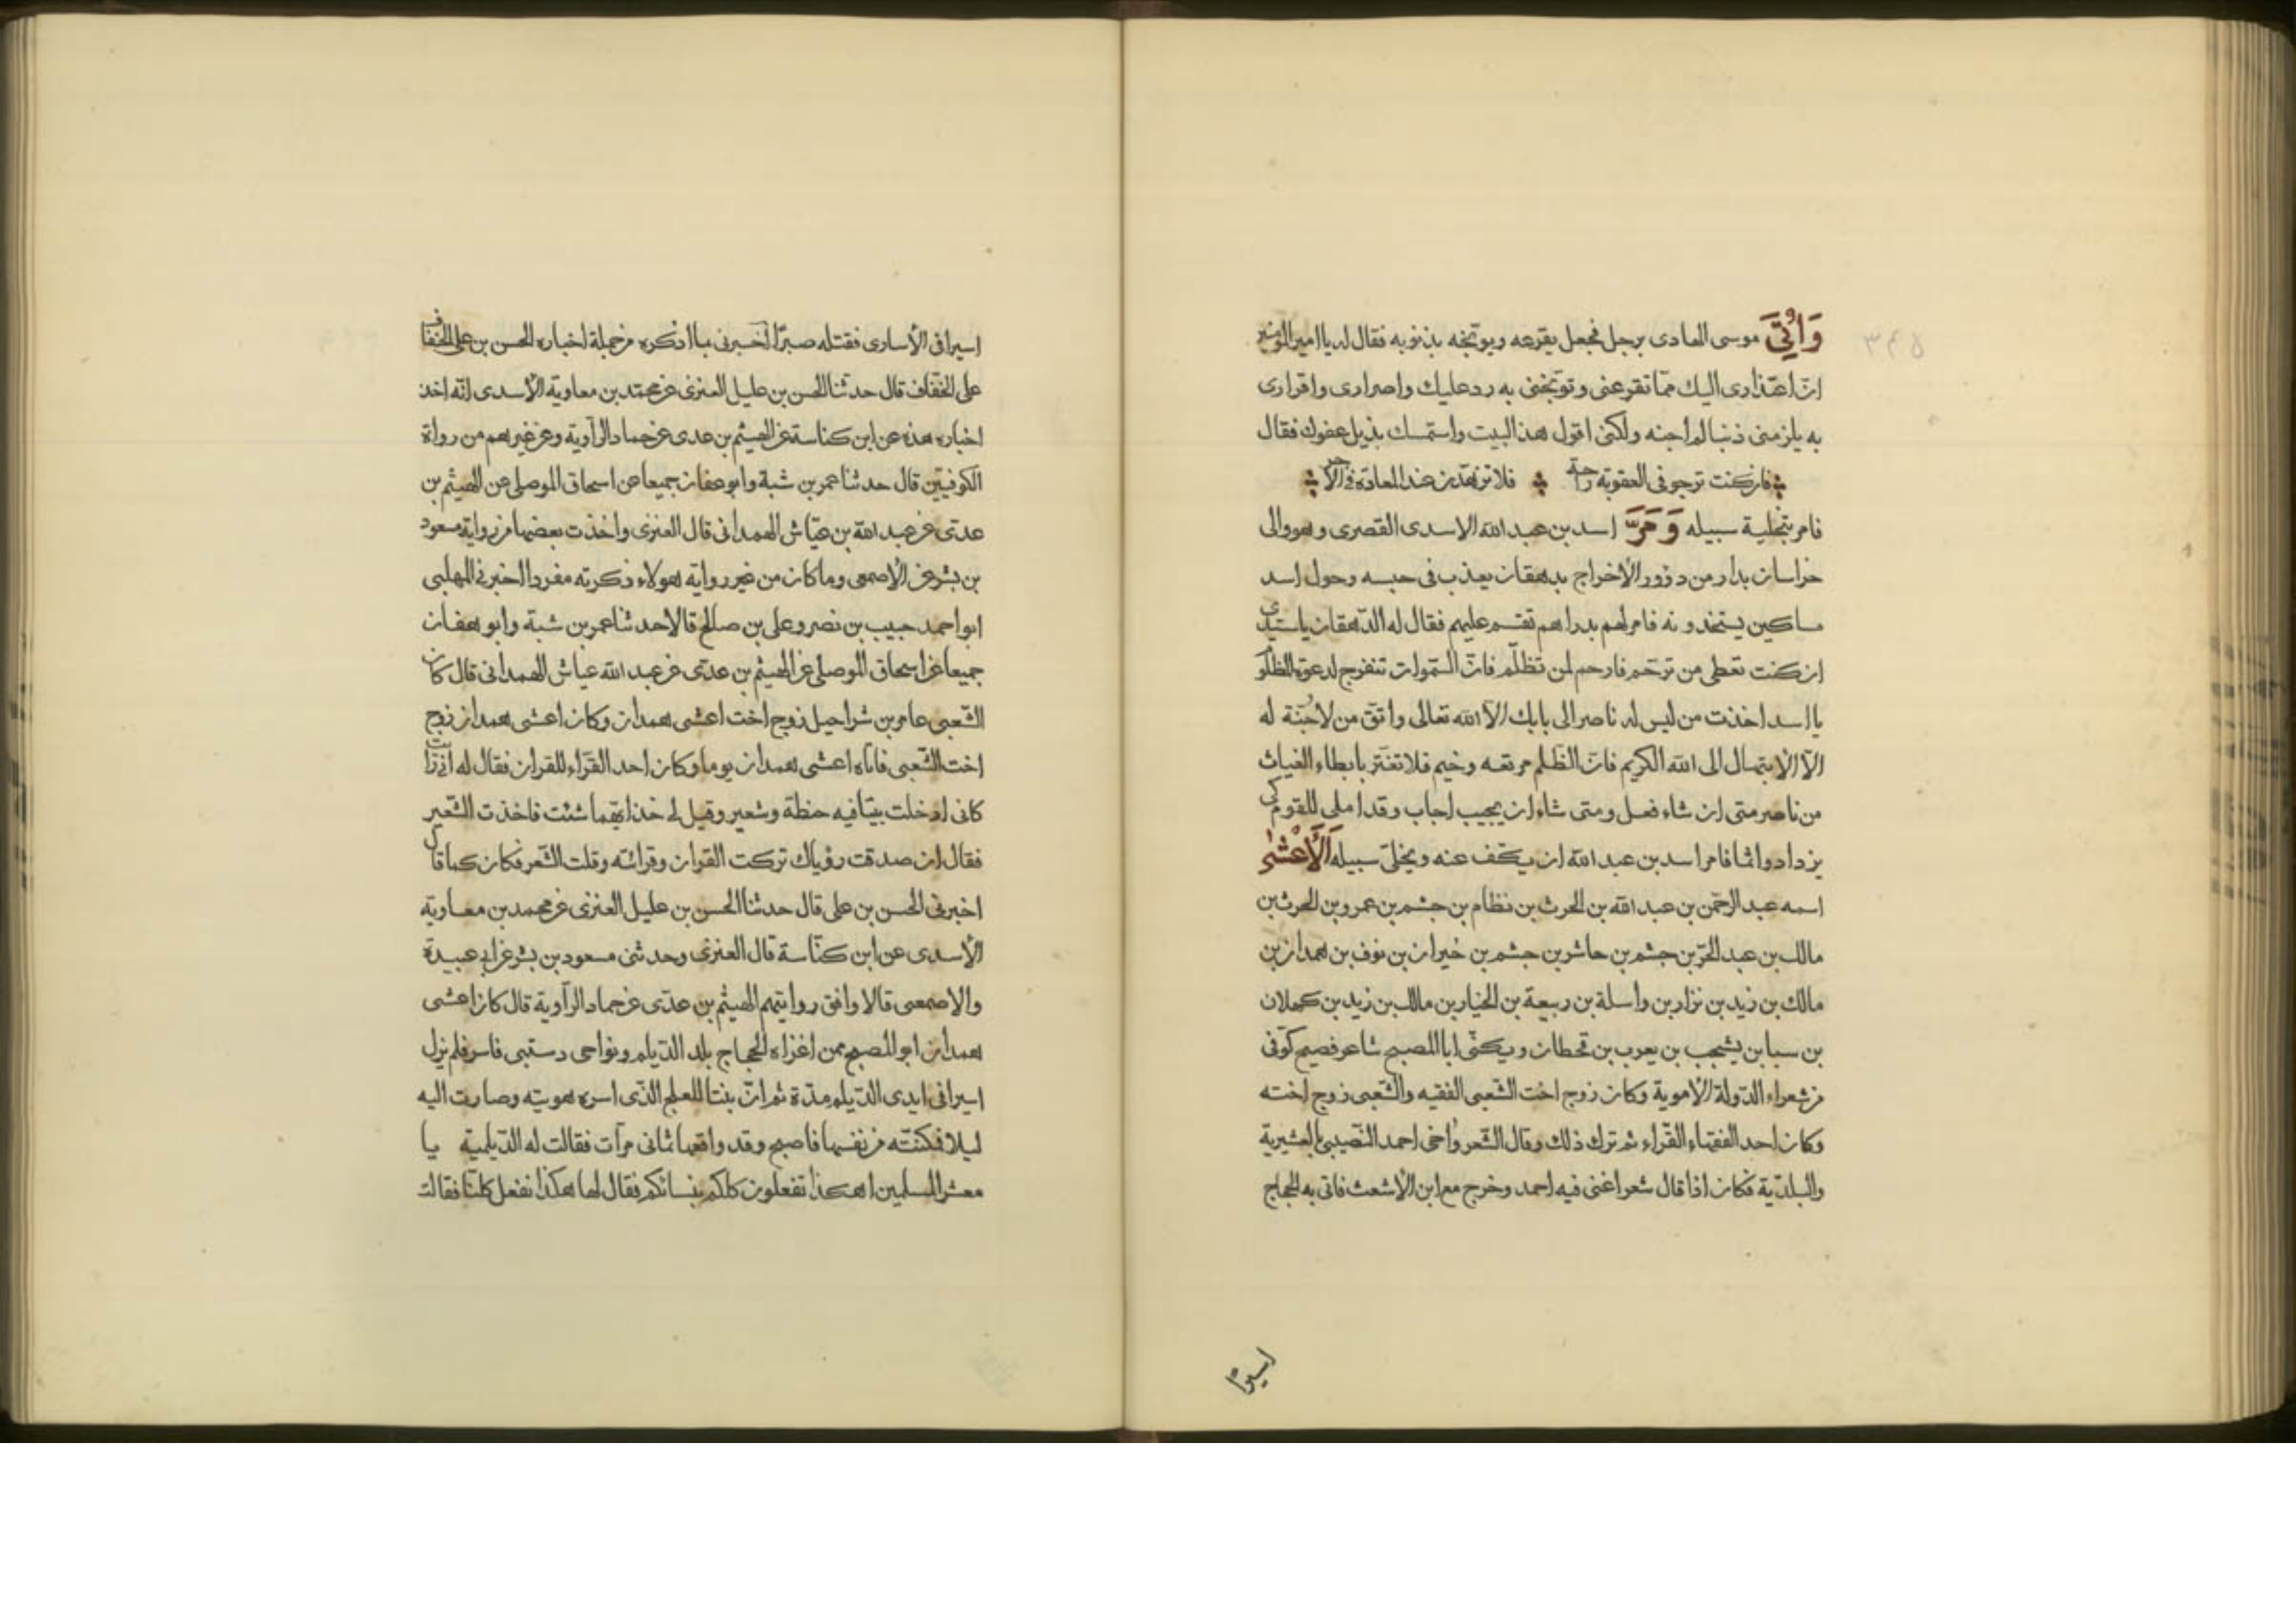 وَأُتِيَ موسى الهادى برجل فجعل يقرعه ويوبّخه بذنوبه فقال له يا امير المؤمنين
انّ اعتذارى اليك ممّا تقرعنى وتوبّخنى به رد عليك واصرارى واقرارى
به يلزمنى ذنبا لم اجنه ولكنى اقول هذا البيت واستمسك بذيل عفوك فقال
فان كنت ترجو فى العقوبة راحة فلا تزهدن عند المعافاة فى الاجر
فامر بتخلية سبيله وَمَرَّ اسد بن عبد الله الاسدى القصرى وهو والى
خراسان بدار من دؤور الاخراج بدهقان يعذب فى حبسه وحول اسد
مساكين يستجدونه فامر لهم بدراهم تقسم عليهم فقال له الدّهقان يا سيدى
ان كنت تعطى من ترحم فارحم لمن تظلّم فانّ السّموات تنفرج لدعوة المظلوم
يا اسد اخذت من ليس له ناصر الى بابك الّا الله تعالى واتق من لا جُنّة له
الّا الابتهال الى الله الكريم فانّ الظلم مرتعه وخيم فلا تغتر بابطاء الغياث
من ناصر متى ان شاء فعل ومتى شاء ان يجيب اجاب وقد املى للقوم كى
يزدادوا اثما فامر اسد بن عبد الله ان يكفّ عنه ويخلّى سبيله اَلْأَعْشٰى
اسمه عبد الرحمن بن عبد الله بن الحرث بن نظام بن جشم بن عمرو بن الحرث بن
مالك بن عبد الحرّ بن جشم بن حاشر بن جشم بن خيران بن نوف بن همدان بن
مالك بن زيد بن نزار بن واسلة بن ربيعة بن الخيار بن مالك بن زيد بن كهلان
بن سبا بن يشجب بن يعرب بن قحطان ويكنّى ابا المصبح شاعر فصيح كوفى
من شعراء الدّولة الاموية وكان زوج اخت الشّعبى الفقيه والشّعبى زوج اخته
وكان احد الفقهاء القرّاء ثم ترك ذلك وقال الشّعر واخى احمد النّصيبى بالعشيرية
والبلديّة فكان اذا قال شعرا غنى فيه احمد وخرج مع ابن الاشعث فاتى به الحجاج
اسيرًا
اسيرا فى الأسارى فقتله صبرًا اخبرنى بما اذكره من جملة اخباره الحسن بن على الخفاف
على الخفّاف قال حدثنا الحسن بن عليل العنزى عن محمّد بن معاوية الأسدى انّه اخذ
اخباره هذه عن ابن كناسة عن الهيثم بن عدى عن حماد الرّاوية وعن غيرهم من رواة
الكوفيّين قال حدثنا عمر بن شبة وابو هفان جميعا عن اسحاق الموصلى عن الهيثم بن
عدىّ عن عبد الله بن عيّاش الهمدانى قال العنزى واخذت بعضها من رواية مسعود
بن بشر عن الاصمعى وما كان من غير رواية هولاء ذكرته مفردا اخبرنى المهلبى
ابو احمد حبيب بن نصر وعلى بن صالح قالا حدثنا عمر بن شبة وابو هفان
جميعا عن اسحاق الموصلى عن الهيثم بن عدىّ عن عبد الله عياش الهمدانى قال كان
الشّعبى عامر بن شراحيل زوج اخت اعشى همدان وكان اعشى همدان زوج
اخت الشّعبى فاتاه اعشى همدان يوما وكان احد القرّاء للقران فقال له انّى رايت
كانى ادخلت بيتا فيه حنطة وشعير وقيل لى خذ ايّهما شئت فاخذت الشّعير
فقال ان صدقت رؤياك تركت القران وقرائته وقلت الشّعر فكان كما قال
اخبرنى الحسن بن على قال حدثنا الحسن بن عليل العنزى عن محمد بن معاوية
الأسدى عن ابن كنّاسة قال العنزى وحدثنى مسعود بن بشر عن ابى عبيدة
والاصمعى قالا وافق روايتهم الهيثم بن عدّى عن حماد الرّاوية قال كان اعشى
همدان ابو المصبح ممن اغزاه الحجاج بلد الدّيلم ونواحى دستبى فاسر فلم يزل
اسيرا فى ايدى الدّيلم مدّة ثم انّ بنتا للعلج الذّى اسره هويته وصارت اليه
ليلا فمكنته من نفسها فاصبح وقد واقعها ثمانى مرّات فقالت له الدّيلمية يا
معشر المسلمين اهكذا تفعلون كلكم بنسائكم فقال لها هكذا نفعل كلنا فقالت